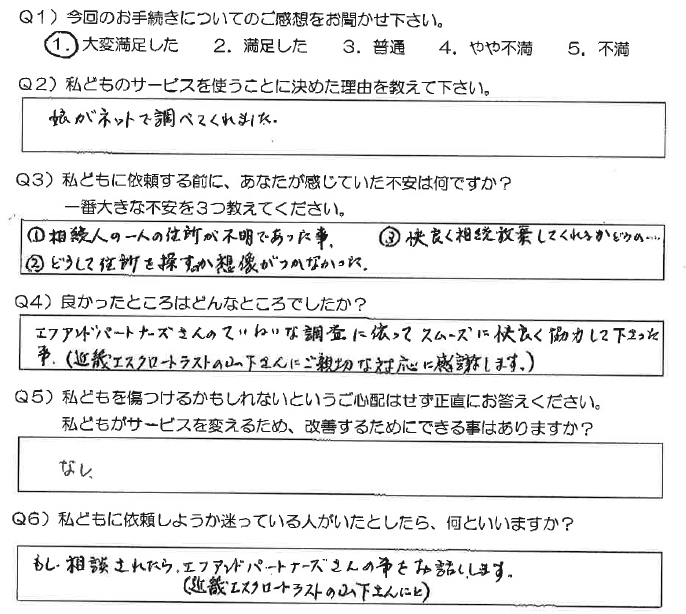 Q1）今回のお手続きについてのご感想をお聞かせ下さい。
1．大変満足した　2．満足した　3．普通　4．やや不満　5．不満
Q2）私どものサービスを使うことに決めた理由を教えて下さい。
娘がネットで調べてくれました.
Q3）私どもに依頼する前に、あなたが感じていた不安は何ですか？
一番大きな不安を3つ教えてください。
①相続人の一人の住所が不明であった事.　③快良く相続放棄してくれるかどうか…
②どうして住所を探すか想像がつかなかった.
Q4）良かったところはどんなところでしたか？
エフアンドパートナーズさんのていねいな調査に依ってスムーズに快良く協力して下さった
事.(近畿エスクロートラストの山下さんにご親切な対応に感謝します。)
Q5）私どもを傷つけるかもしれないというご心配はせず正直にお答えください。
私どもがサービスを変えるため、改善するためにできる事はありますか？
なし、
Q6）私どもに依頼しようか迷っている人がいたとしたら、何といいますか？
もし.相談されたら,エフアンドパートナーズさんの事をお話しします。
(近畿エスクロートラストの山下さんにと)